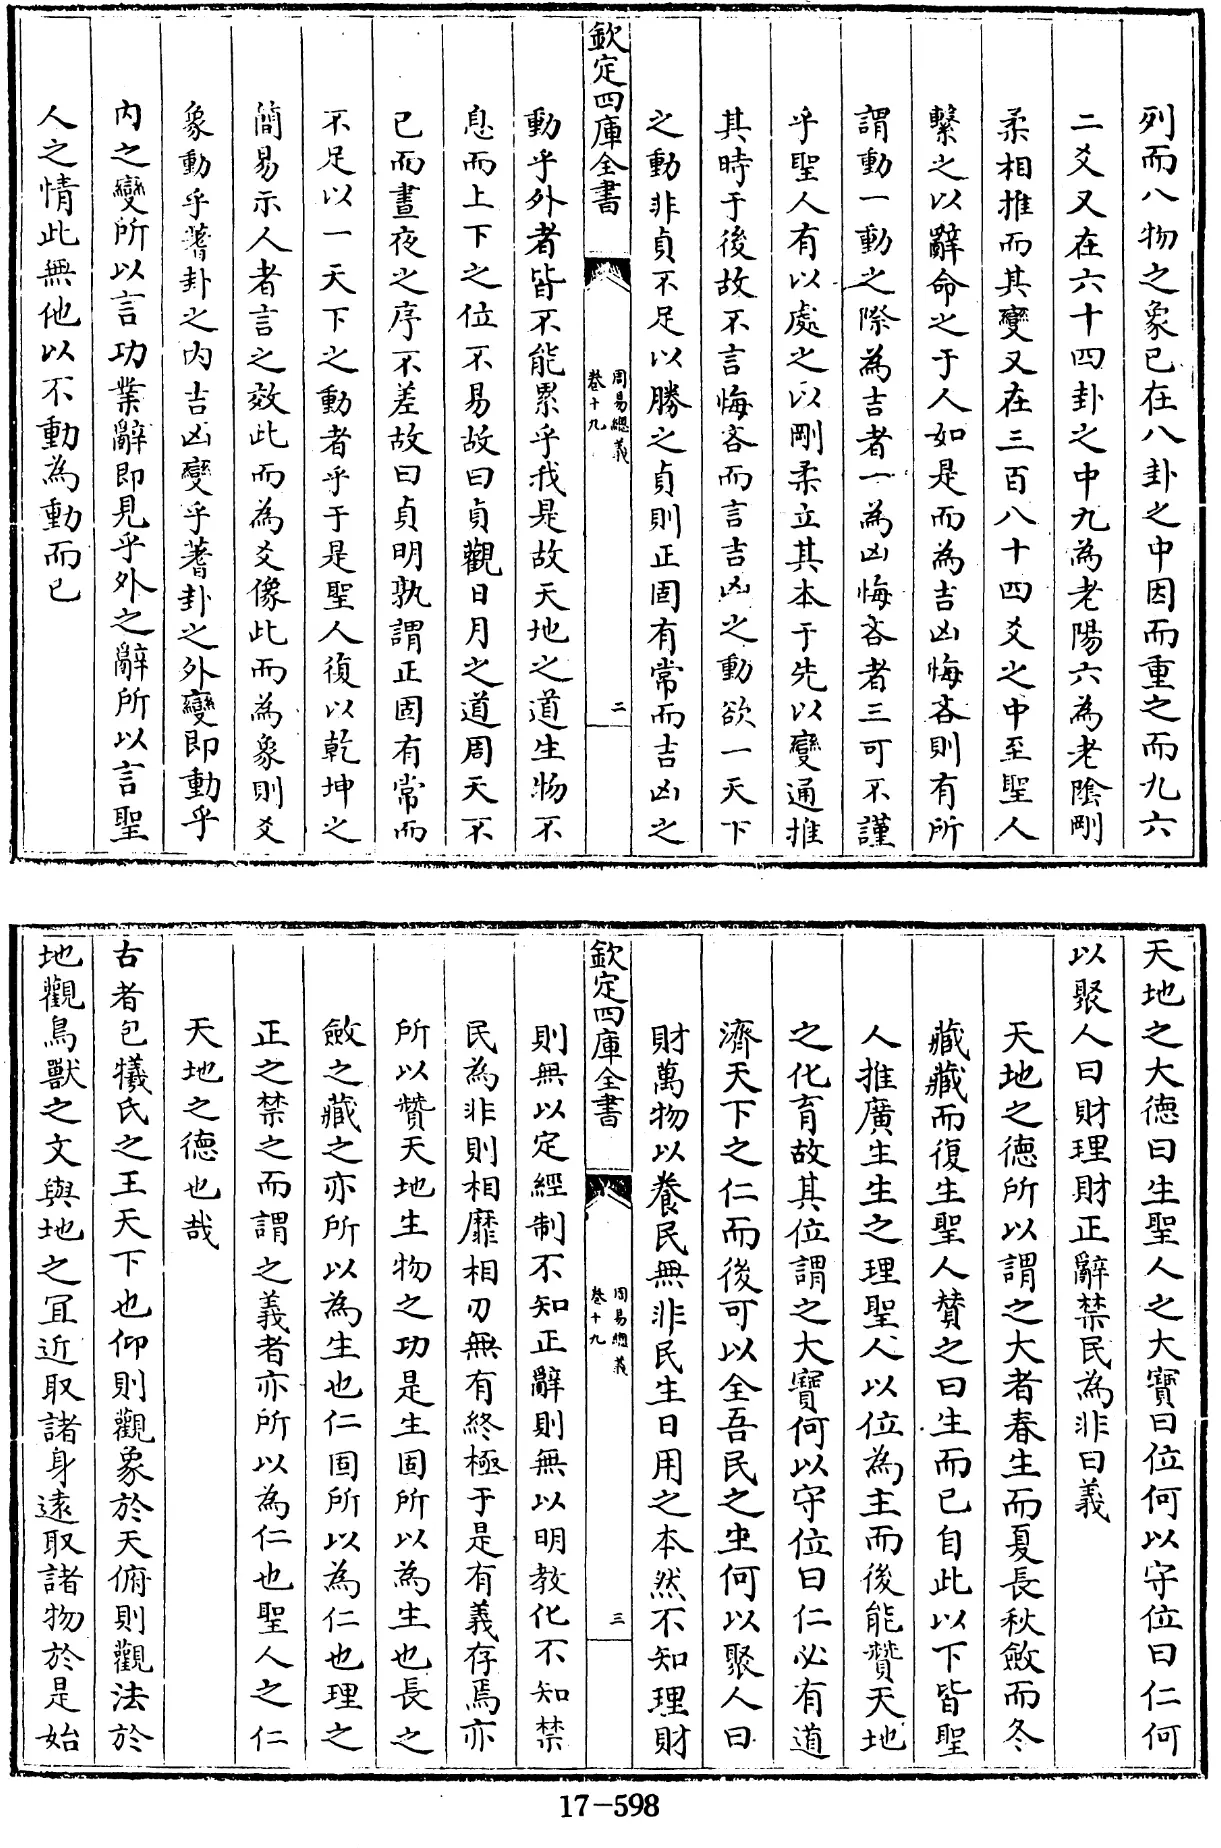 列而八物之象已在八卦之中因而重之而九六
二爻又在六十四卦之中九為老陽六為老陰剛
柔相推而其變又在三百八十四爻之中至聖人
繫之以辭命之于人如是而為吉凶悔吝則有所
謂動一動之際為吉者一為凶悔吝者三可不謹
乎聖人有以處之以剛柔立其本于先以變通推
其時于後故不言悔吝而言吉凶之動欲一天下
之動非貞不足以勝之貞則正固有常而吉凶之
欽定四庫全書
周易總義
卷十九
二
動乎外者皆不能累乎我是故天地之道生物不
息而上下之位不易故曰貞觀日月之道周天不
已而晝夜之序不差故曰貞明孰謂正固有常而
不足以一天下之動者乎于是聖人復以乾坤之
簡易示人者言之效此而為爻像此而為象則爻
象動乎蓍卦之内吉凶變乎蓍卦之外變即動乎
内之變所以言功業辭即見乎外之辭所以言聖
人之情此無他以不動為動而已
天地之大德曰生聖人之大寶曰位何以守位曰仁何
以聚人曰財理財正辭禁民為非曰義
天地之德所以謂之大者春生而夏長秋斂而冬
藏藏而復生聖人贊之曰生而已自此以下皆聖
人推廣生生之理聖人以位為主而後能贊天地
之化育故其位謂之大寶何以守位曰仁必有道
濟天下之仁而後可以全吾民之生何以聚人曰
財萬物以養民無非民生日用之本然不知理財
欽定四庫全書
周易總義
卷十九
三
則無以定經制不知正辭則無以明教化不知禁
民為非則相靡相刃無有終極于是有義存焉亦
所以贊天地生物之功是生固所以為生也長之
斂之藏之亦所以為生也仁固所以為仁也理之
正之禁之而謂之義者亦所以為仁也聖人之仁
天地之德也哉
古者包犧氏之王天下也仰則觀象於天俯則觀法於
地觀鳥獸之文與地之宜近取諸身遠取諸物於是始
17-598